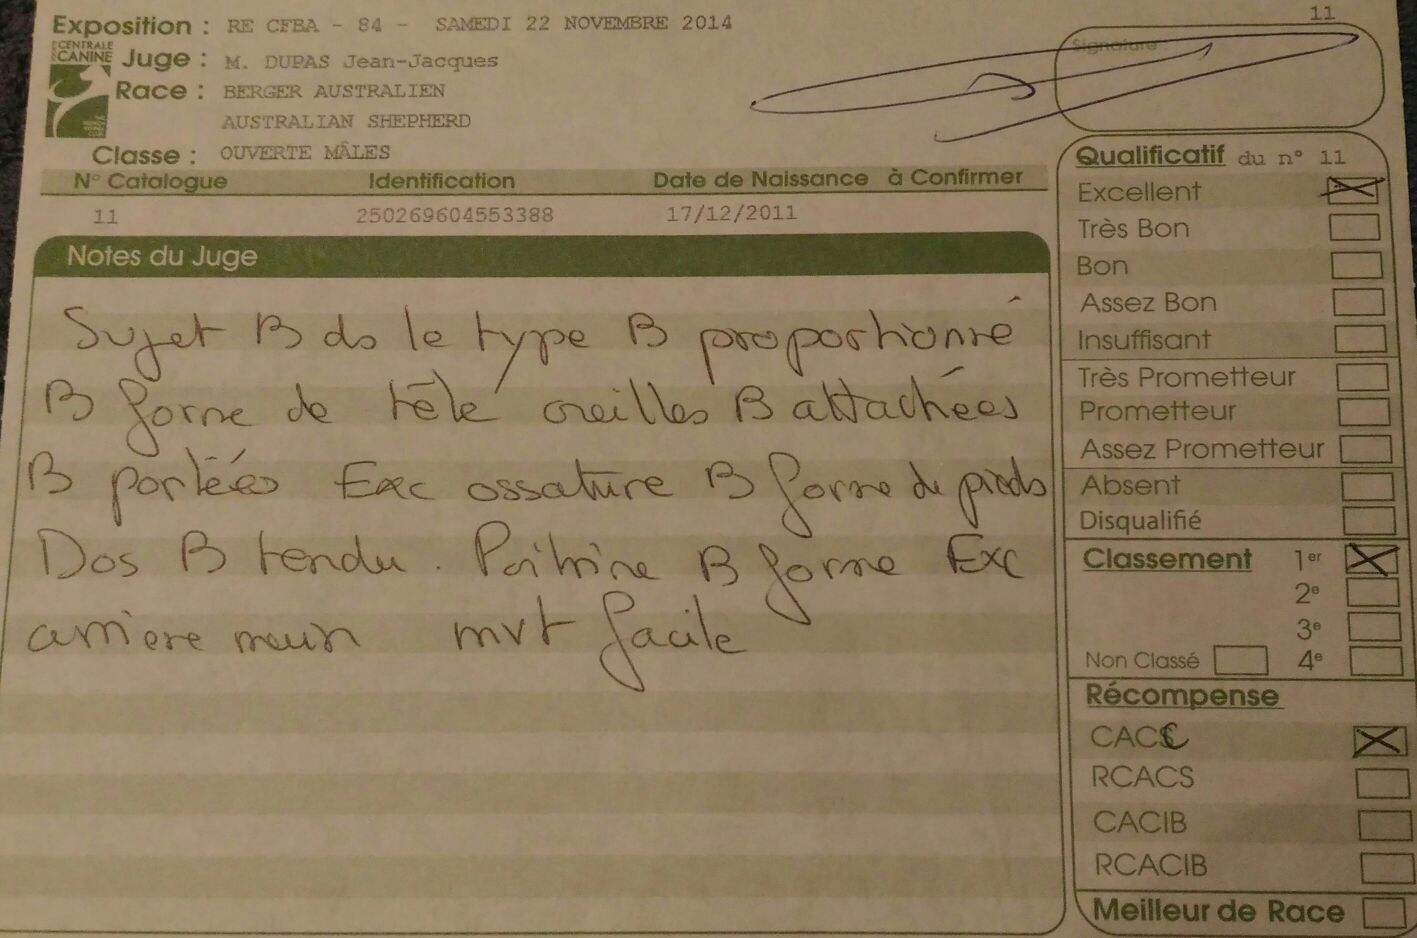 11
Exposition : RE CFBA - 84 - SAMEDI 22 NOVEMBRE 2014
CENTRALE CANINE
Juge : M. DUPAS Jean-Jacques
Signature :
Race : BERGER AUSTRALIEN
AUSTRALIAN SHEPHERD
Classe : OUVERTE MÂLES
N° Catalogue Identification Date de Naissance à Confirmer
11 250269604553388 17/12/2011
Notes du Juge
Sujet B ds le type B proportionné
B forme de tête oreilles B attachées
B portées Exc ossature B forme de pieds
Dos B tendu. Poitrine B forme Exc
arrière main mvt facile
Qualificatif du n° 11
Excellent
Très Bon
Bon
Assez Bon
Insuffisant
Très Prometteur
Prometteur
Assez Prometteur
Absent
Disqualifié
Classement 1er
2e
3e
Non Classé 4e
Récompense
CACS
RCACS
CACIB
RCACIB
Meilleur de Race